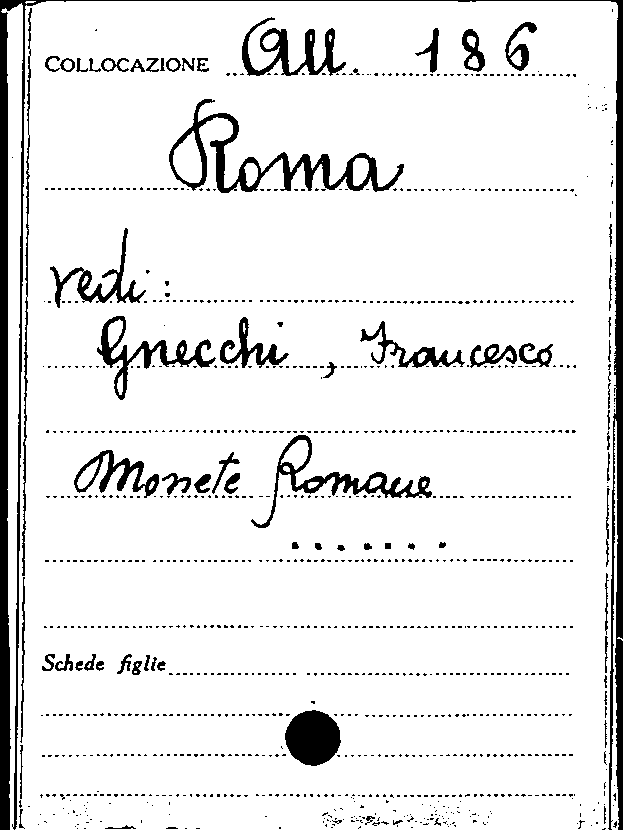 COLLOCAZIONE All. 186
Roma
vedi:
Gnecchi, Francesco
Monete Romane
.......
Schede figlie